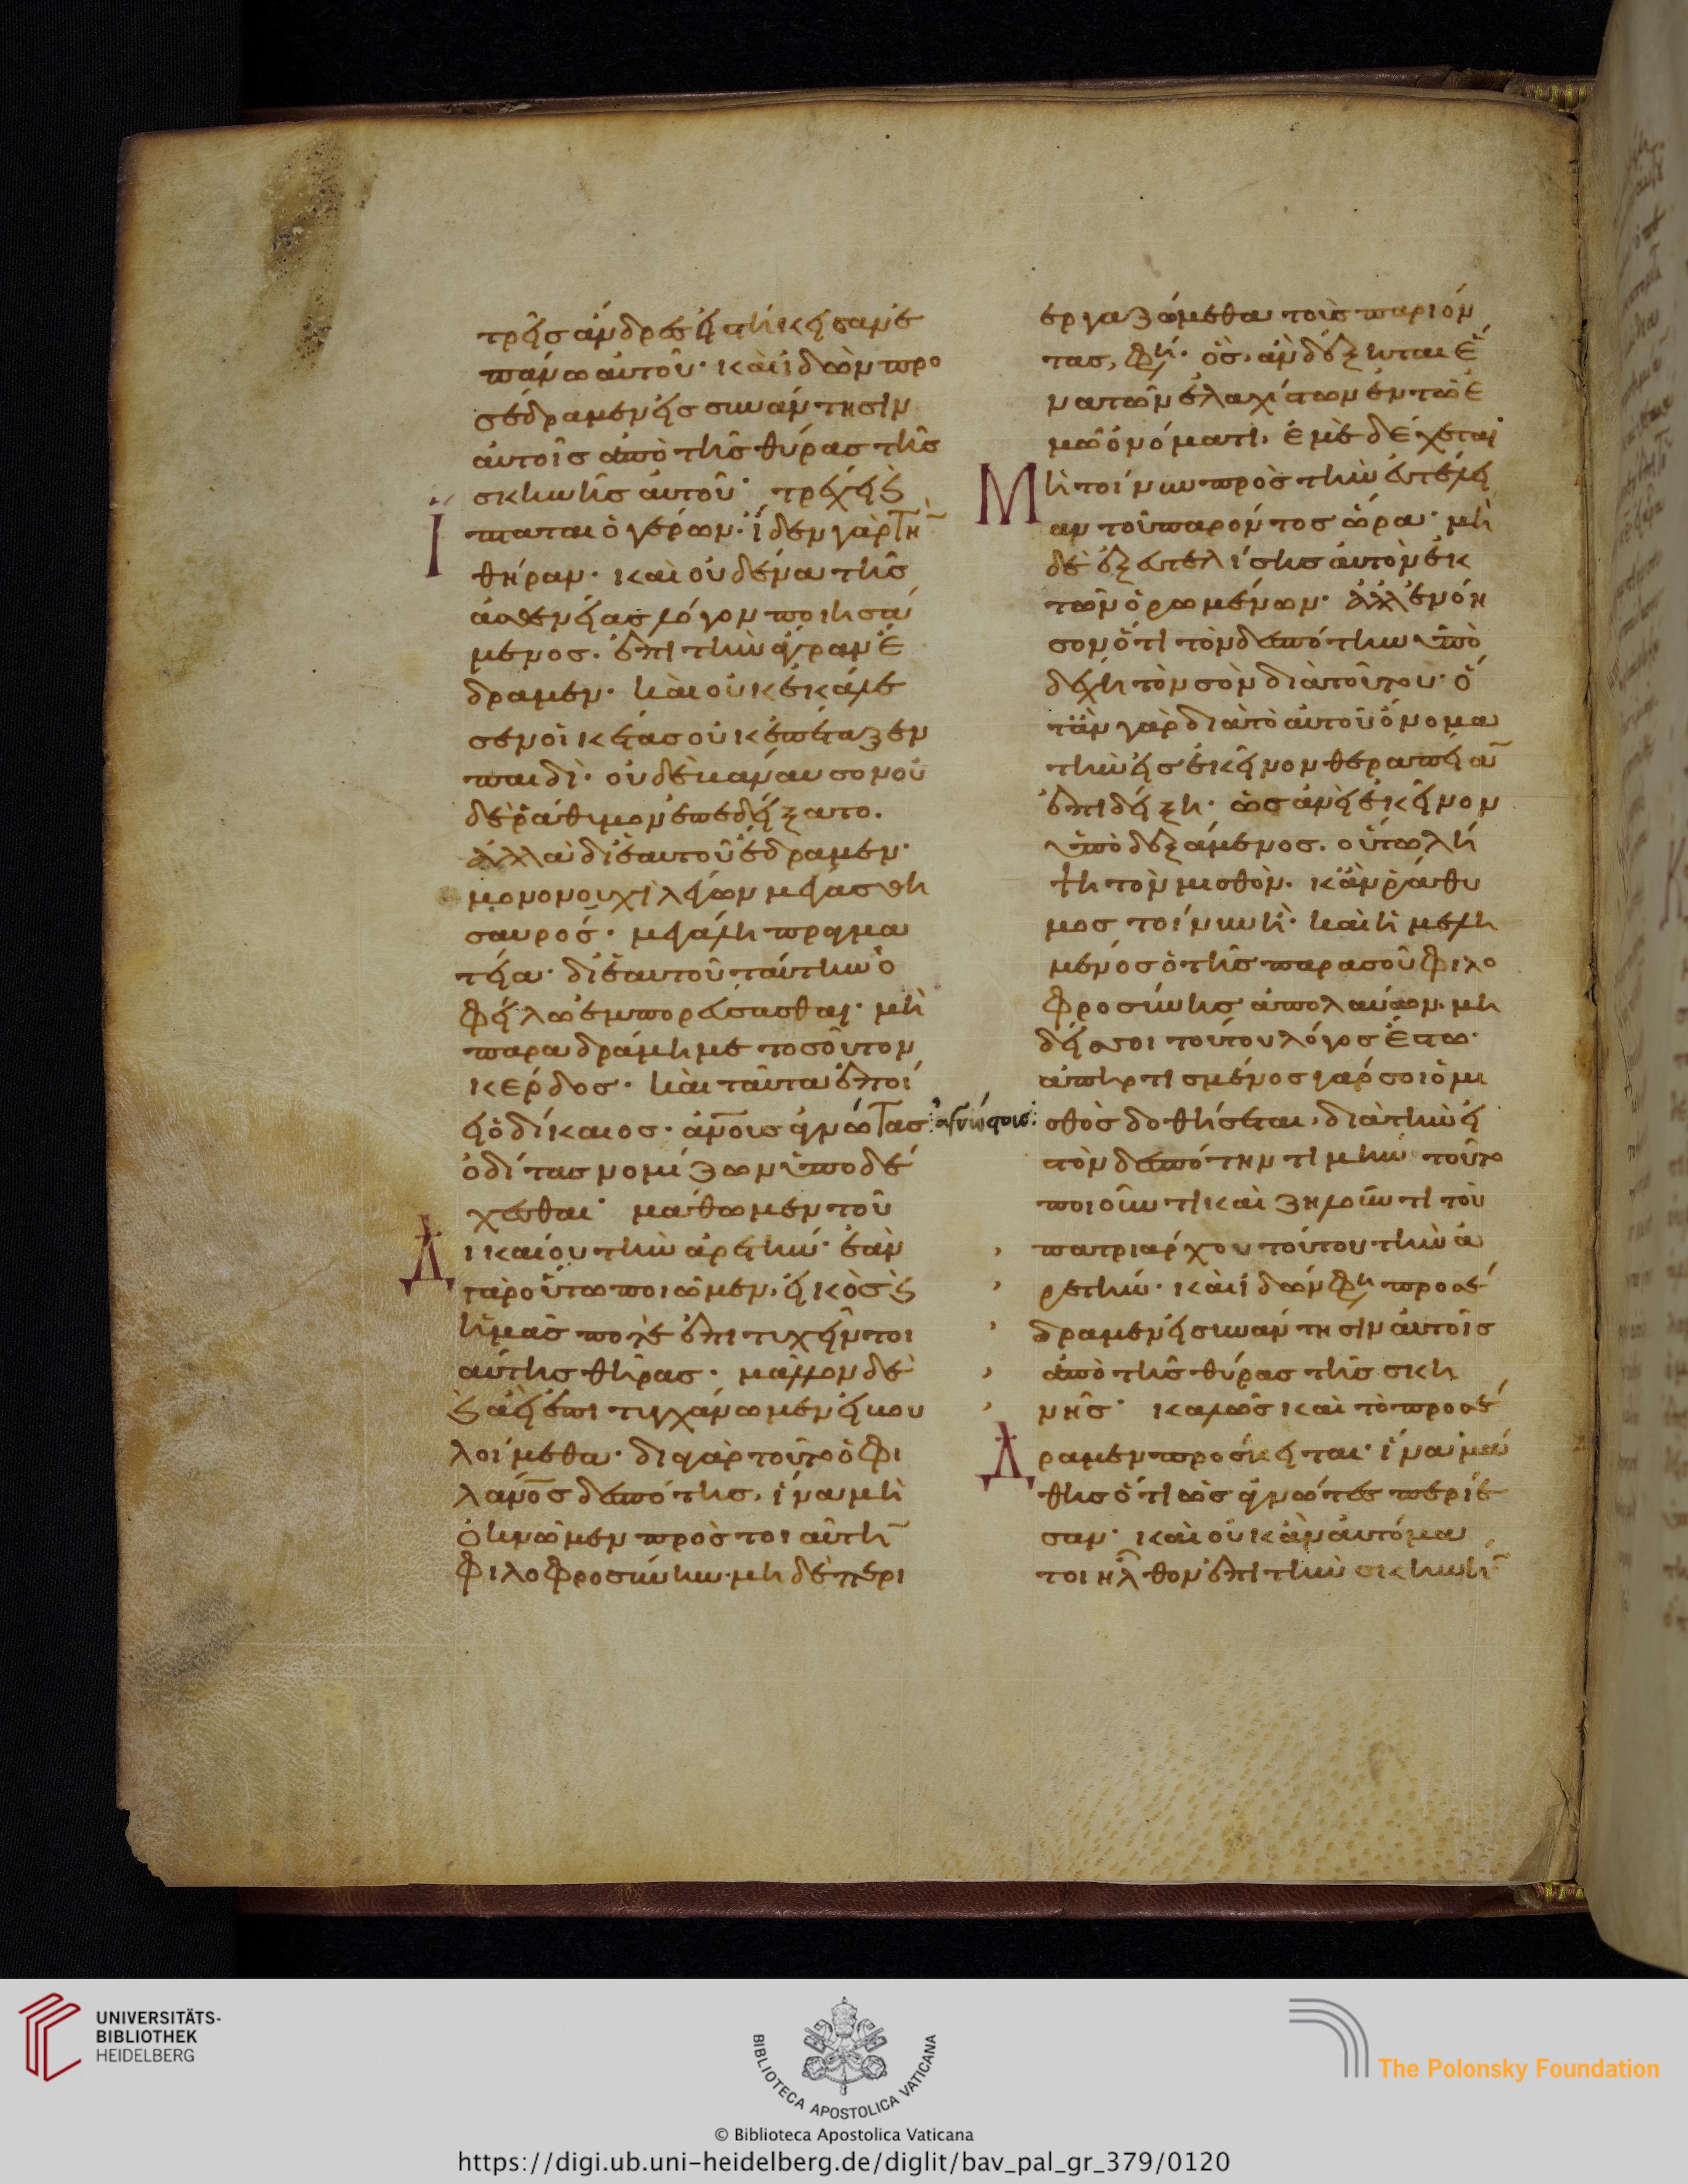 τρεῖς ἄνδρες εἱστήκεισαν ἐ
πάνω αὐτοῦ· καὶ ἰδὼν προ
σέδραμεν εἰς συνάντησιν
αὐτοῖς ἀπὸ τῆς θύρας τῆς
σκηνῆς αὐτοῦ· τρέχει καὶ
ἵπταται ὁ γέρων· ἴδεν γὰρ τὴν
θήραν· καὶ οὐδένα τῆς
ἀσθενείας λόγον ποιησά
μενος· ἐπὶ τὴν ἄγραν ἔ
δραμεν· καὶ οὐκ ἐκάλε
σεν οἰκέτας οὐκ ἐπέταξεν
παιδὶ· οὐδὲν ἀνάνσον οὐ
δὲ ῥάθυμον ἐπεδείξατο.
ἀλλὰ δι' ἑαυτοῦ ἔδραμεν·
μονονουχὶ λέγων μέγας θη
σαυρός· μεγάλη πραγμα
τεία· δι' ἑαυτοῦ ταύτην ὀ
φείλω ἐμπορεύσασθαι· μὴ
παραδράμη με τοσοῦτον
κέρδος· καὶ ταῦτα ἐποί
ει ὁ δίκαιος· ἀνους ἀγνῶτας ἀγνώστους
ὁδίτας νομίζων ὑποδέ
χεσθαι· μάθωμεν τοῦ
Δικαίου τὴν ἀρετήν· ἐὰν
γὰρ οὕτω ποιῶμεν, εἰκὸς καὶ
ἡμᾶς ποτὲ ἐπιτυχεῖν τοι
αύτης θήρας· μᾶλλον δὲ
καὶ ἀεὶ ἐπιτυγχάνωμεν εἰ βου
λοίμεθα· διὰ γὰρ τοῦτο ὁ φι
λανος δεσπότης, ἵνα μὴ
ὀκνῶμεν πρὸς τοιαύτην
φιλοφροσύνην· μηδὲ περι
εργαζώμεθα τοῖς παριόν
τας, φη· ὃς, ἂν δέξηται ἕ
να τῶν ἐλαχίστων ἐν τῷ ἐ
μῷ ὀνόματι, ἐμὲ δέχεται
Μὴ τοίνυν πρὸς τὴν εὐτέλει
αν τοῦ παρόντος ὅρα· μὴ
δὲ ἐξευτελίσης αὐτὸν ἐκ
τῶν ὁρωμένων· ἀλλ' ἐννόη
σον ὅτι τὸν δεσπότην ὑπο
δέχη τὸν σὸν διὰ τούτου· ὅ
τὰν γὰρ διὰ τὸ αὐτοῦ ὄνομα
τὴν εἰς ἐκεῖνον θεραπείαν
ἐπιδείξη· ὡσανεὶ ἐκεῖνον
ὑποδεξάμενος. οὕτω λή
ψη τὸν μισθὸν. κἂν ῥάθυ
μος τοίνυν ἦ· κἂν ἠμελη
μένος ὁ τῆς παρὰ σοῦ φιλο
φροσύνης ἀπολαύων. μη
δείς σοι τούτου λόγος ἔστω·
ἀπηρτισμένος γάρ σοι ὁ μι
σθὸς δοθήσεται, διὰ τὴν εἰς
τὸν δεσπότην τιμὴν τοῦτο
ποιοῦντι καὶ ζηλοῦντι τοῦ
πατριάρχου τούτου τὴν ἀ
ρετήν· καὶ ἰδών φη προσέ
δραμεν εἰς συνάντησιν αὐτοῖς
ἀπὸ τῆς θύρας τῆς σκη
νῆς· καλῶς καὶ τὸ προσέ
Δραμεν πρόσκειται· ἵνα μά
θης ὅτι ὡς ἀγνῶτες περιῄε
σαν· καὶ οὐκ ἂν αὐτόμα
τοι ἦλθον ἐπὶ τὴν σκηνήν
UNIVERSITÄTS-
BIBLIOTHEK
HEIDELBERG
BIBLIOTECA APOSTOLICA VATICANA
The Polonsky Foundation
© Biblioteca Apostolica Vaticana
https://digi.ub.uni-heidelberg.de/diglit/bav_pal_gr_379/0120